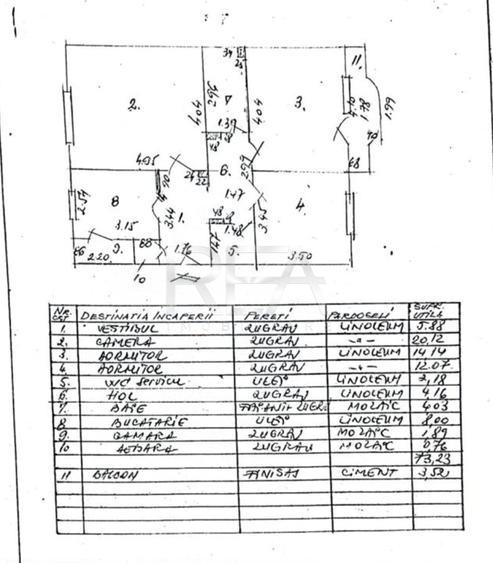 34
25
11.
2.
2.96
4.04
7
4.04
3.
4.10
1.78
1.99
1.30
48
40
4.95
24
22
6.
2.99
68
2.54
8
3.44
1.
1.47
48
3.42
4.
3.15
1.48
86
9.
68
1.76
1.47
5.
2.20
3.50
10
REA
NR. CRT DESTINATIA INCAPERII PERETI PARDOSELI SUPR. UTILA
1. VESTIBUL ZUGRAV LINOLEUM 5.88
2. CAMERA ZUGRAV -"- 20,12
3. DORMITOR ZUGRAV LINOLEUM 14.14
4. DORMITOR ZUGRAV -"- 12.07
5. WC serviciu ULEI LINOLEUM 2,18
6 HOL ZUGRAV LINOLEUM 4,16
7. BAIE MOZAIC 4.03
8 BUCATARIE ULEI LINOLEUM 8,00
9. CAMARA ZUGRAV MOZAIC 1,89
10 ZUGRAV MOZAIC 0,76
73,23
11 BALCON FINISAJ CIMENT 3,52